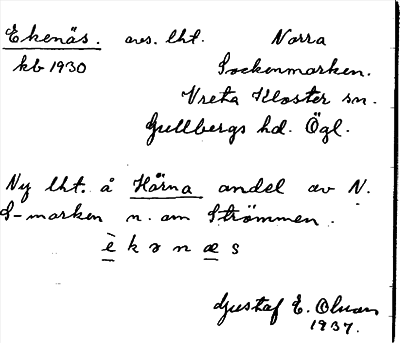 Ekenäs. avs. lht. Norra
kb 1930 Sockenmarken.
Vreta Kloster sn.
Gullbergs hd. Ögl.
Ny lht. å Hårna andel av N.
S-marken n. om Strömmen.
è k ə n æ s
Gustaf E. Olson
1937.